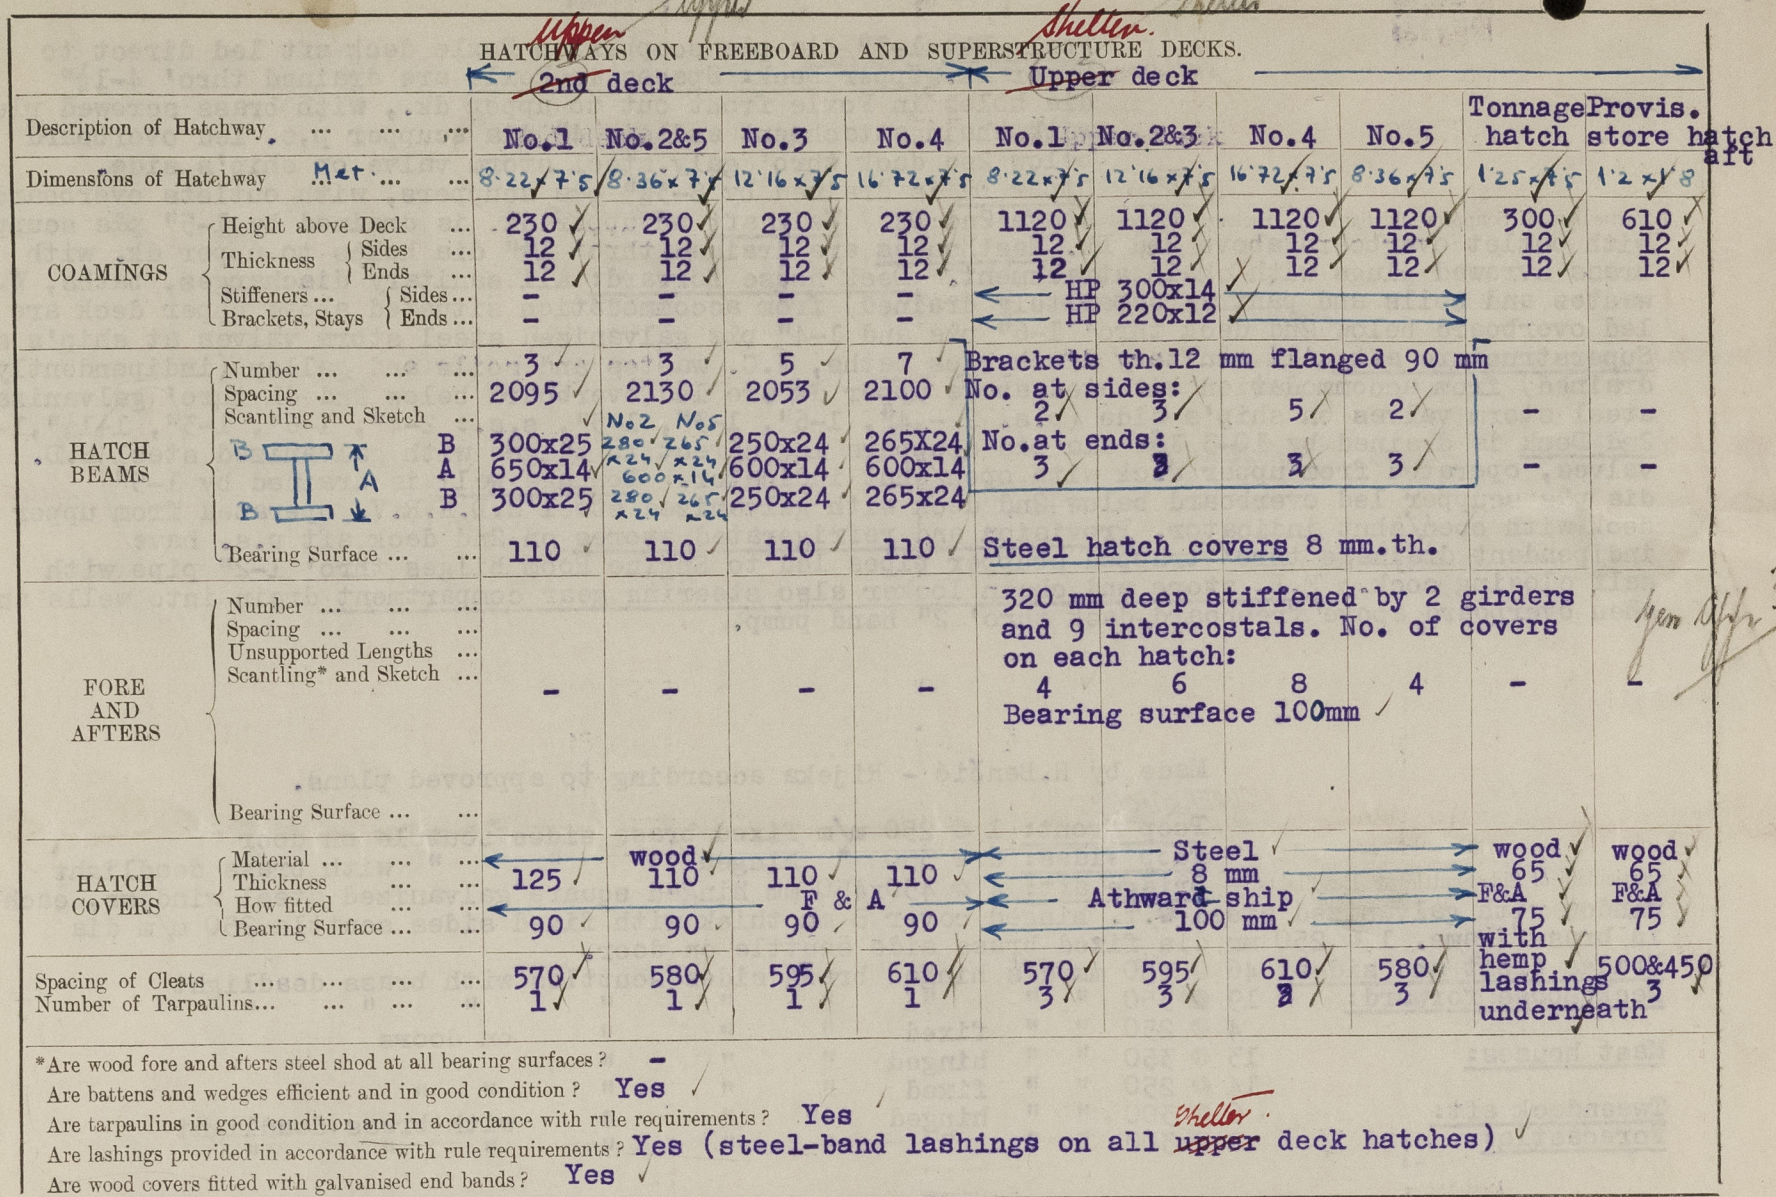 Upper Shelter.
HATCHWAYS ON FREEBOARD AND SUPERSTRUCTURE DECKS.
2nd deck Upper deck
Description of Hatchway. ... ... ... No.1 No.2&5 No.3 No.4 No.1 No.2&3 No.4 No.5 Tonnage hatch Provis. store hatch aft
Dimensions of Hatchway Met. ... ... 8.22x7.5 8.36x7.5 12.16x7.5 16.72x7.5 8.22x7.5 12.16x7.5 16.72x7.5 8.36x7.5 1.25x7.5 1.2x1.8
COAMINGS
Height above Deck ... 230 230 230 230 1120 1120 1120 1120 300 610
Thickness Sides ... 12 12 12 12 12 12 12 12 12 12
Ends ... 12 12 12 12 12 12 12 12 12 12
Stiffeners ... Sides ... - - - - HP 300x14
Brackets, Stays Ends ... - - - - HP 220x12
HATCH BEAMS
Number ... ... ... 3 3 5 7 Brackets th.12 mm flanged 90 mm
Spacing ... ... ... 2095 2130 2053 2100 No. at sides:
2 3 5 2 - -
Scantling and Sketch ... No2 No5
B B 300x25 280 x24 265 x24 250x24 265X24 No.at ends:
A A 650x14 600x14 600x14 600x14 3 3 3 3 - -
B B 300x25 280 x24 265 x24 250x24 265x24
Bearing Surface ... ... 110 110 110 110 Steel hatch covers 8 mm.th.
FORE AND AFTERS
Number ... ... ... 320 mm deep stiffened by 2 girders
Spacing ... ... ... and 9 intercostals. No. of covers
Unsupported Lengths ... on each hatch:
Scantling* and Sketch ... - - - - 4 6 8 4 - -
Bearing surface 100mm
Bearing Surface ... ...
HATCH COVERS
Material ... ... ... wood Steel wood wood
Thickness ... ... 125 110 110 110 8 mm 65 65
How fitted ... ... F & A Athward-ship F&A F&A
Bearing Surface ... ... 90 90 90 90 100 mm 75 75
with hemp lashings underneath
Spacing of Cleats ... ... ... ... 570 580 595 610 570 595 610 580 500&450
Number of Tarpaulins... ... ... ... 1 1 1 1 3 3 3 3 3
*Are wood fore and afters steel shod at all bearing surfaces ? -
Are battens and wedges efficient and in good condition ? Yes
Are tarpaulins in good condition and in accordance with rule requirements ? Yes
Shelter.
Are lashings provided in accordance with rule requirements ? Yes (steel-band lashings on all upper deck hatches)
Are wood covers fitted with galvanised end bands ? Yes